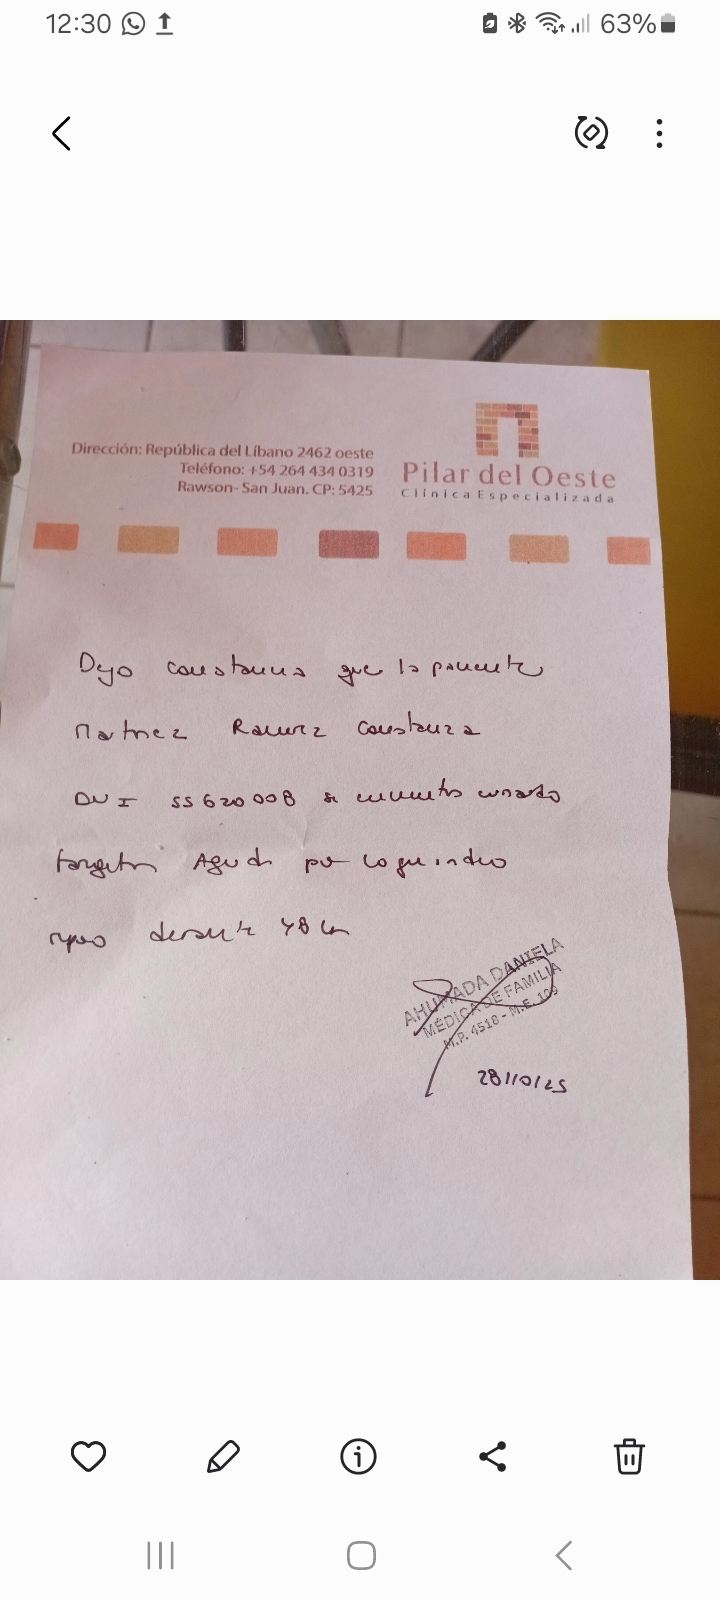 12:30
63%
Dirección: República del Líbano 2462 oeste
Teléfono: +54 264 434 0319
Rawson- San Juan. CP: 5425
Pilar del Oeste
Clínica Especializada
Dejo constancia que la paciente
Martinez Ramirez Constanza
DNI 55620008 se encuentra cursando
faringitis Aguda por lo que indico
reposo durante 48 hs
AHUMADA DANIELA
MÉDICA DE FAMILIA
M.P. 4518 - M.E. 109
28/10/25